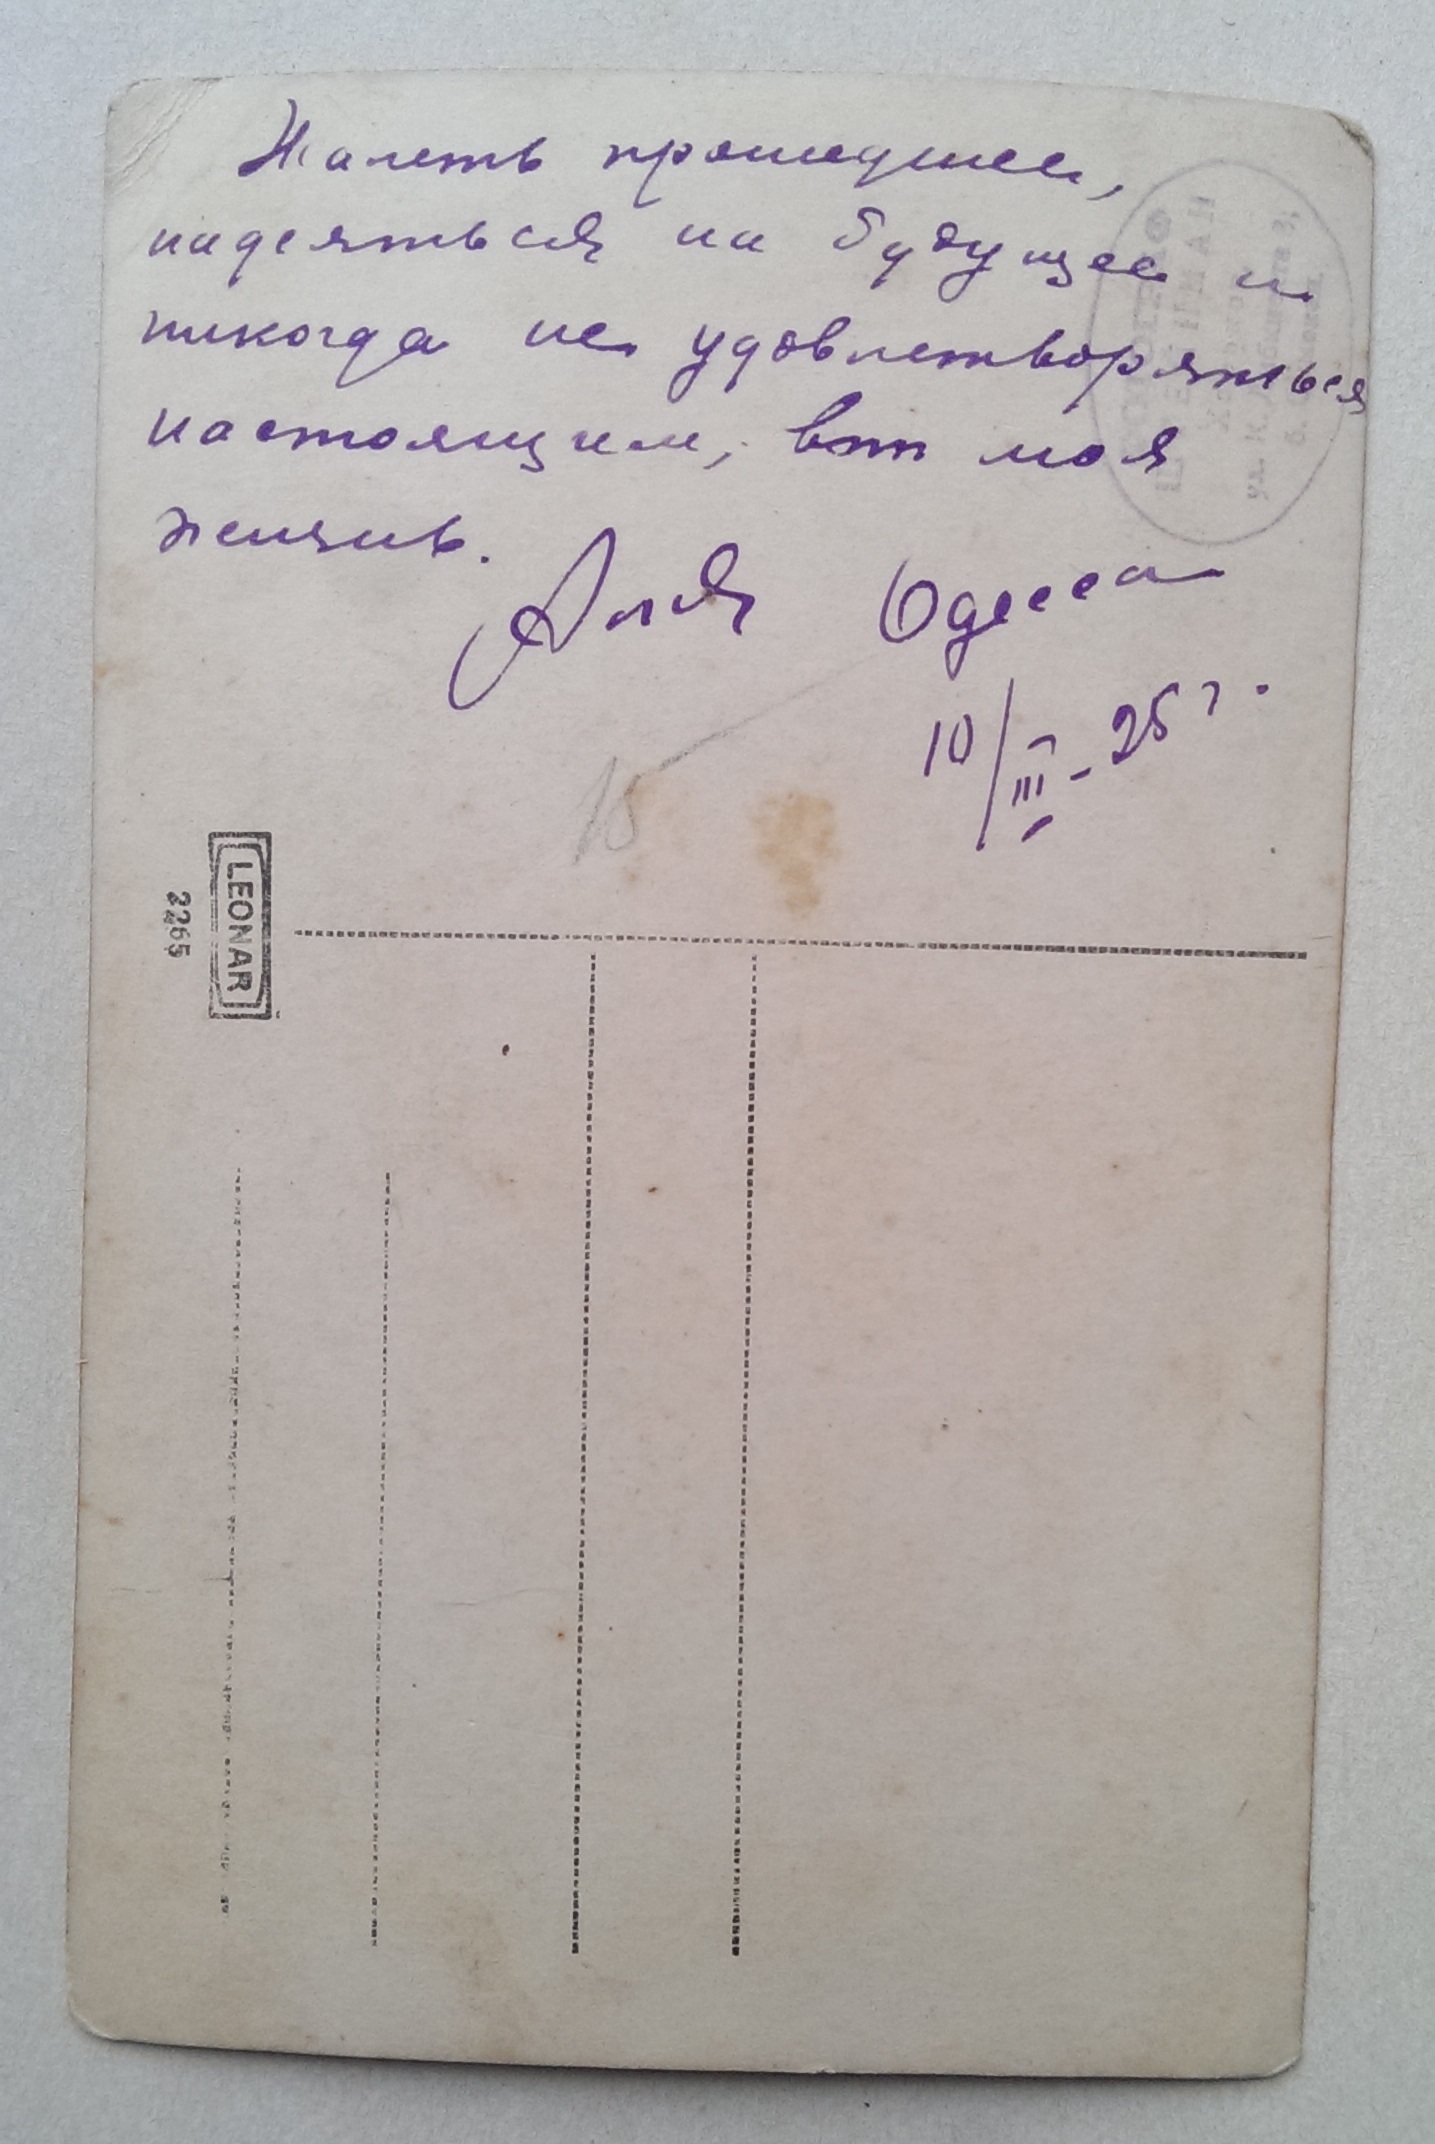 Жалеть прошедшее,
надеяться на будущее и
никогда не удовлетворяться
настоящим, вот моя
жизнь.
Аля Одесса
10/III-25 г.
15
LEONAR
2265